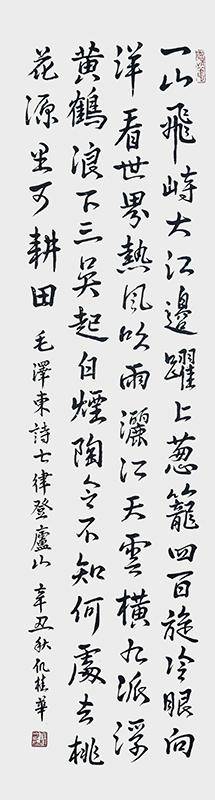 一山飛峙大江邊躍上葱籠四百旋冷眼向
洋看世界熱風吹雨灑江天雲橫九派浮
黃鶴浪下三吳起白煙陶令不知何處去桃
花源里可耕田
毛澤東詩七律登廬山 辛丑秋 桂華